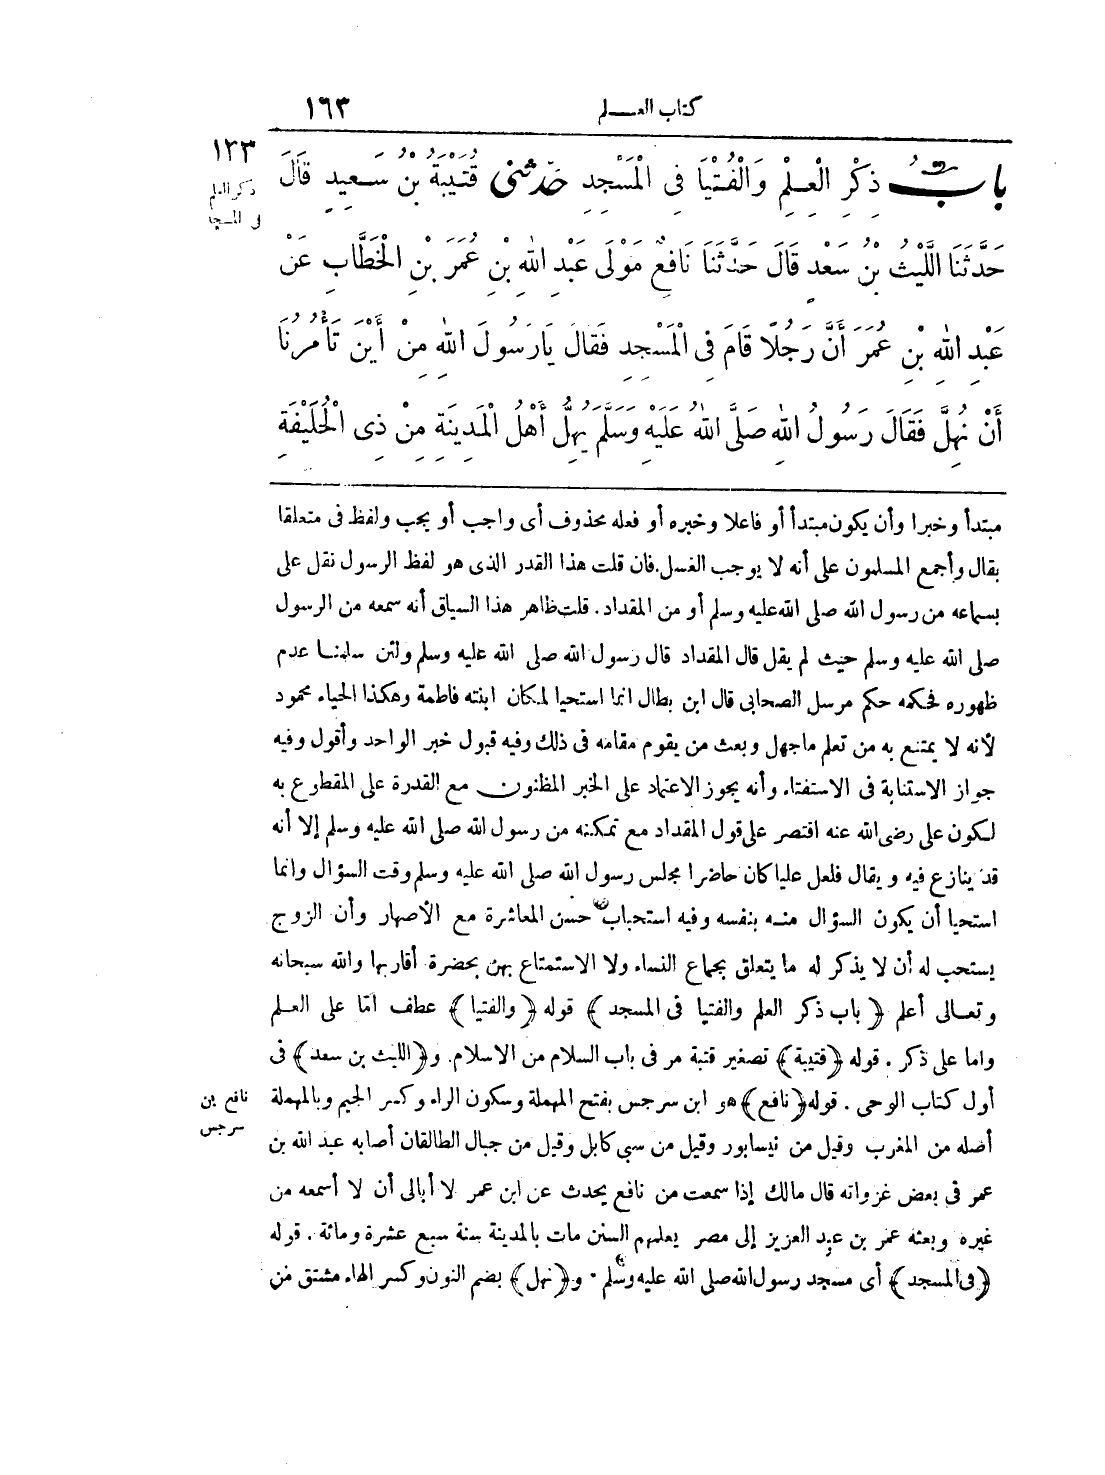 كتاب العلم ١٦٣
١٣٣
ذكر العلم
فى المسجد
بابُ ذِكْرِ الْعِلْمِ وَالْفُتْيَا فِى الْمَسْجِدِ حَدَّثَنِى قُتَيْبَةُ بْنُ سَعِيدٍ قَالَ
حَدَّثَنَا اللَّيْثُ بْنُ سَعْدٍ قَالَ حَدَّثَنَا نَافِعٌ مَوْلَى عَبْدِ اللهِ بْنِ عُمَرَ بْنِ الْخَطَّابِ عَنْ
عَبْدِ اللهِ بْنِ عُمَرَ أَنَّ رَجُلًا قَامَ فِى الْمَسْجِدِ فَقَالَ يَا رَسُولَ اللهِ مِنْ أَيْنَ تَأْمُرُنَا
أَنْ نُهِلَّ فَقَالَ رَسُولُ اللهِ صَلَّى اللهُ عَلَيْهِ وَسَلَّمَ يُهِلُّ أَهْلُ الْمَدِينَةِ مِنْ ذِى الْحُلَيْفَةِ
مبتدأ وخبرا وأن يكون مبتدأ أو فاعلا وخبره أو فعله محذوف أى واجب أو يجب ولفظ فى متعلقا
بقال وأجمع المسلمون على أنه لا يوجب الغسل. فان قلت هذا القدر الذى هو لفظ الرسول نقل على
بسماعه من رسول الله صلى الله عليه وسلم أو من المقداد. قلت ظاهر هذا السياق أنه سمعه من الرسول
صلى الله عليه وسلم حيث لم يقل قال المقداد قال رسول الله صلى الله عليه وسلم ولئن سلمنا عدم
ظهوره فحكمه حكم مرسل الصحابى قال ابن بطال انما استحيا لمكان ابنته فاطمة وهكذا الحياء محمود
لأنه لا يمتنع به من تعلم ما جهل وبعث من يقوم مقامه فى ذلك وفيه قبول خبر الواحد وأقول وفيه
جواز الاستنابة فى الاستفتاء وأنه يجوز الاعتماد على الخبر المظنون مع القدرة على المقطوع به
لكون على رضى الله عنه اقتصر على قول المقداد مع تمكنه من رسول الله صلى الله عليه وسلم إلا أنه
قد ينازع فيه ويقال فلعل عليا كان حاضرا مجلس رسول الله صلى الله عليه وسلم وقت السؤال وانما
استحيا أن يكون السؤال منه بنفسه وفيه استحباب حسن المعاشرة مع الأصهار وأن الزوج
يستحب له أن لا يذكر له ما يتعلق بجماع النساء ولا الاستمتاع بهن بحضرة أقاربها والله سبحانه
وتعالى أعلم ﴿باب ذكر العلم والفتيا فى المسجد﴾ قوله ﴿والفتيا﴾ عطف اما على العلم
واما على ذكر. قوله ﴿قتيبة﴾ تصغير قتبة مر فى باب السلام من الاسلام. و﴿الليث بن سعد﴾ فى
أول كتاب الوحى. قوله ﴿نافع﴾ هو ابن سرجس بفتح المهملة وسكون الراء وكسر الجيم وبالمهملة
نافع بن
سرجس
أصله من المغرب وقيل من نيسابور وقيل من سبى كابل وقيل من جبال الطالقان أصابه عبد الله بن
عمر فى بعض غزواته قال مالك إذا سمعت من نافع يحدث عن ابن عمر لا أبالى أن لا أسمعه من
غيره وبعثه عمر بن عبد العزيز إلى مصر يعلمهم السنن مات بالمدينة سنة سبع عشرة ومائة. قوله
﴿فى المسجد﴾ أى مسجد رسول الله صلى الله عليه وسلم. و﴿نهل﴾ بضم النون وكسر الهاء مشتق من